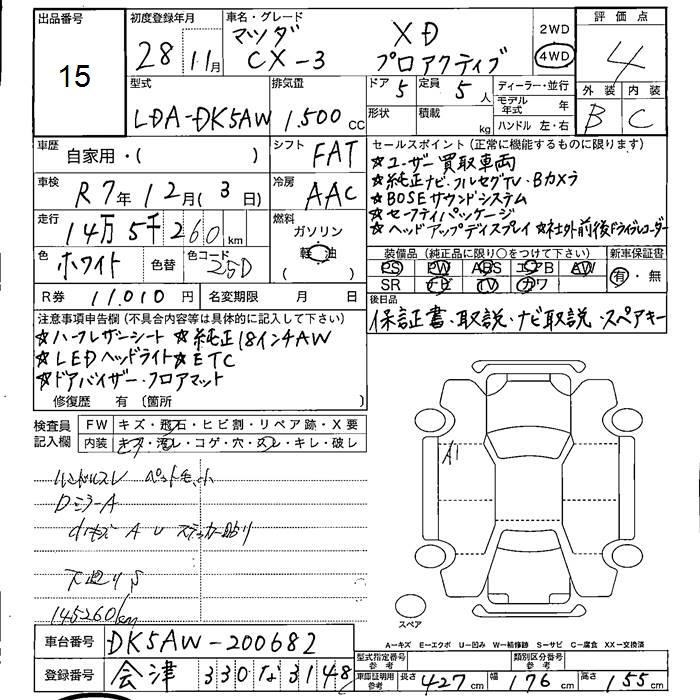 出品番号 15
初度登録年月 28 11月
車名・グレード マツダ CX-3 XD プロアクティブ
2WD
4WD
評価点 4
外装 B 内装 C
型式 LDA-DK5AW
排気量 1,500 cc
ドア 5 定員 5 人
形状 積載 kg
ディーラー・並行
モデル年式 年
ハンドル 左・右
車歴 自家用・( )
シフト FAT
車検 R7年12月(3日)
冷房 AAC
走行 14万5千260 km
燃料 ガソリン 軽油
色 ホワイト 色替 色コード 25D
R券 11,010円 名変期限 月 日
セールスポイント(正常に機能するものに限ります)
★ユーザー買取車両
★純正ナビ・フルセグTV・Bカメラ
★BOSEサウンドシステム
★セーフティパッケージ
★ヘッドアップディスプレイ ★社外前後ドライブレコーダー
装備品(純正品に限り○をつけて下さい) 新車保証書
PS PW ABS エアB AW 有・無
SR ナビ TV カワ
後日品
保証書・取説・ナビ取説・スペアキー
注意事項申告欄(不具合内容等は具体的に記入して下さい)
★ハーフレザーシート ★純正18インチAW
★LEDヘッドライト ★ETC
★ドアバイザー・フロアマット
修復歴 有(箇所 )
検査員記入欄 FW キズ・飛石・ヒビ割・リペア跡・X要
内装 キズ・汚レ・コゲ・穴・スレ・キレ・破レ
ハンドルスレ ペット毛、小
DミラーA
小キズ A U ステッカー貼り
下廻りS
145260km
A1
スペア
A-キズ E-エクボ U-凹み W-補修跡 S-サビ C-腐食 XX-交換済
車台番号 DK5AW-200682
登録番号 会津 330 な 3148
型式指定番号 参考 類別区分番号 参考
車庫証明用参考 長さ 427cm 幅 176cm 高さ 155cm